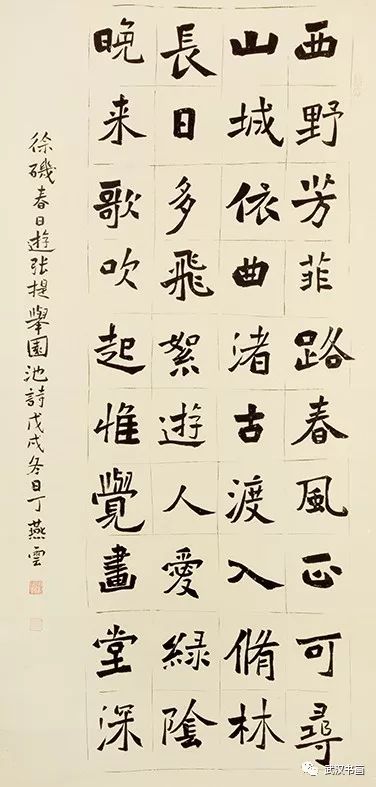 西野芳菲路春風正可尋
山城依曲渚古渡入脩林
長日多飛絮遊人愛綠陰
晚来歌吹起惟覺畫堂深
徐磯春日遊张提舉園池詩戊戌冬日丁燕雲
武汉书画